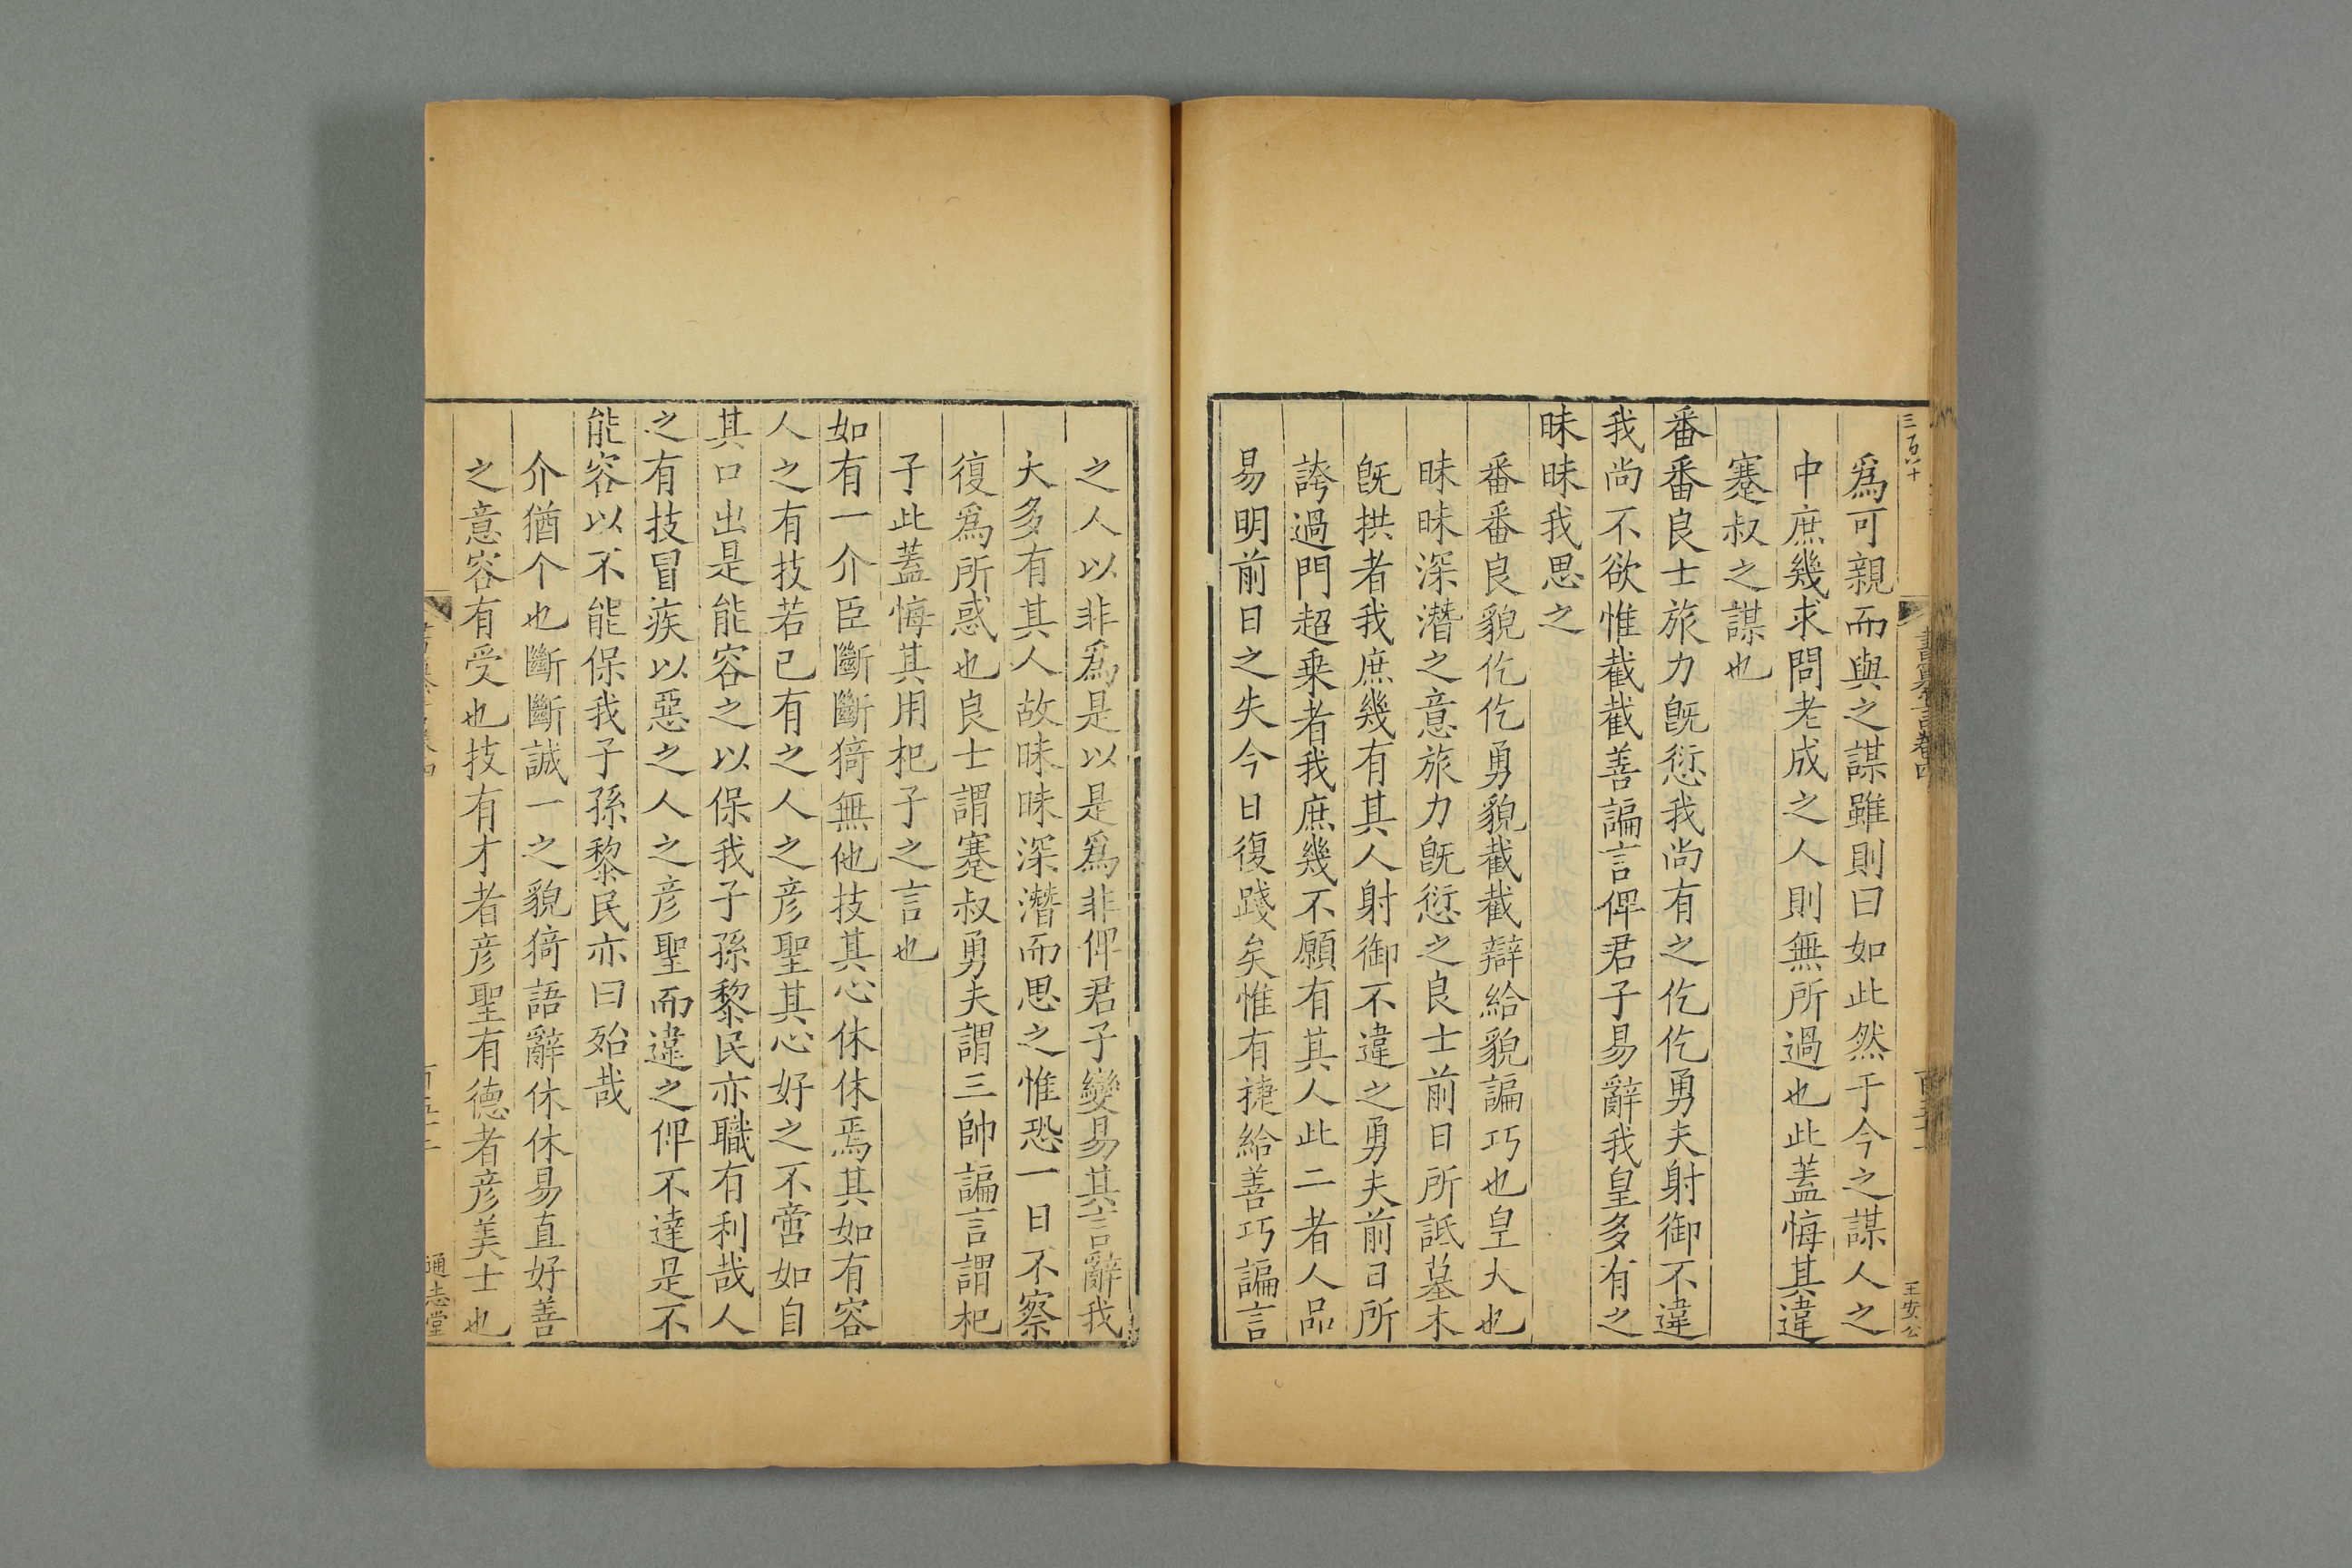 爲可親而與之謀雖則曰如此然于今之謀人之
中庶幾求問老成之人則無所過也此蓋悔其違
蹇叔之謀也
番番良士旅力旣愆我尚有之仡仡勇夫射御不違
我尚不欲惟截截善諞言俾君子易辭我皇多有之
昧昧我思之
番番良貌仡仡勇貌截截辯給貌諞巧也皇大也
昧昧深潛之意旅力旣愆之良士前日所詆墓木
旣拱者我庶幾有其人射御不違之勇夫前日所
誇過門超乗者我庶幾不願有其人此二者人品
易明前日之失今日復踐矣惟有捷給善巧諞言
之人以非爲是以是爲非俾君子變易其言辭我
大多有其人故昧昧深潛而思之惟恐一日不察
復爲所惑也良士謂蹇叔勇夫謂三帥諞言謂杞
子此蓋悔其用杞子之言也
如有一介臣斷斷猗無他技其心休休焉其如有容
人之有技若已有之人之彦聖其心好之不啻如自
其口出是能容之以保我子孫黎民亦職有利哉人
之有技冒疾以惡之人之彦聖而違之俾不達是不
能容以不能保我子孫黎民亦曰殆哉
介猶个也斷斷誠一之貌猗語辭休休易直好善
之意容有受也技有才者彦聖有德者彦美士也
通志堂
王安公